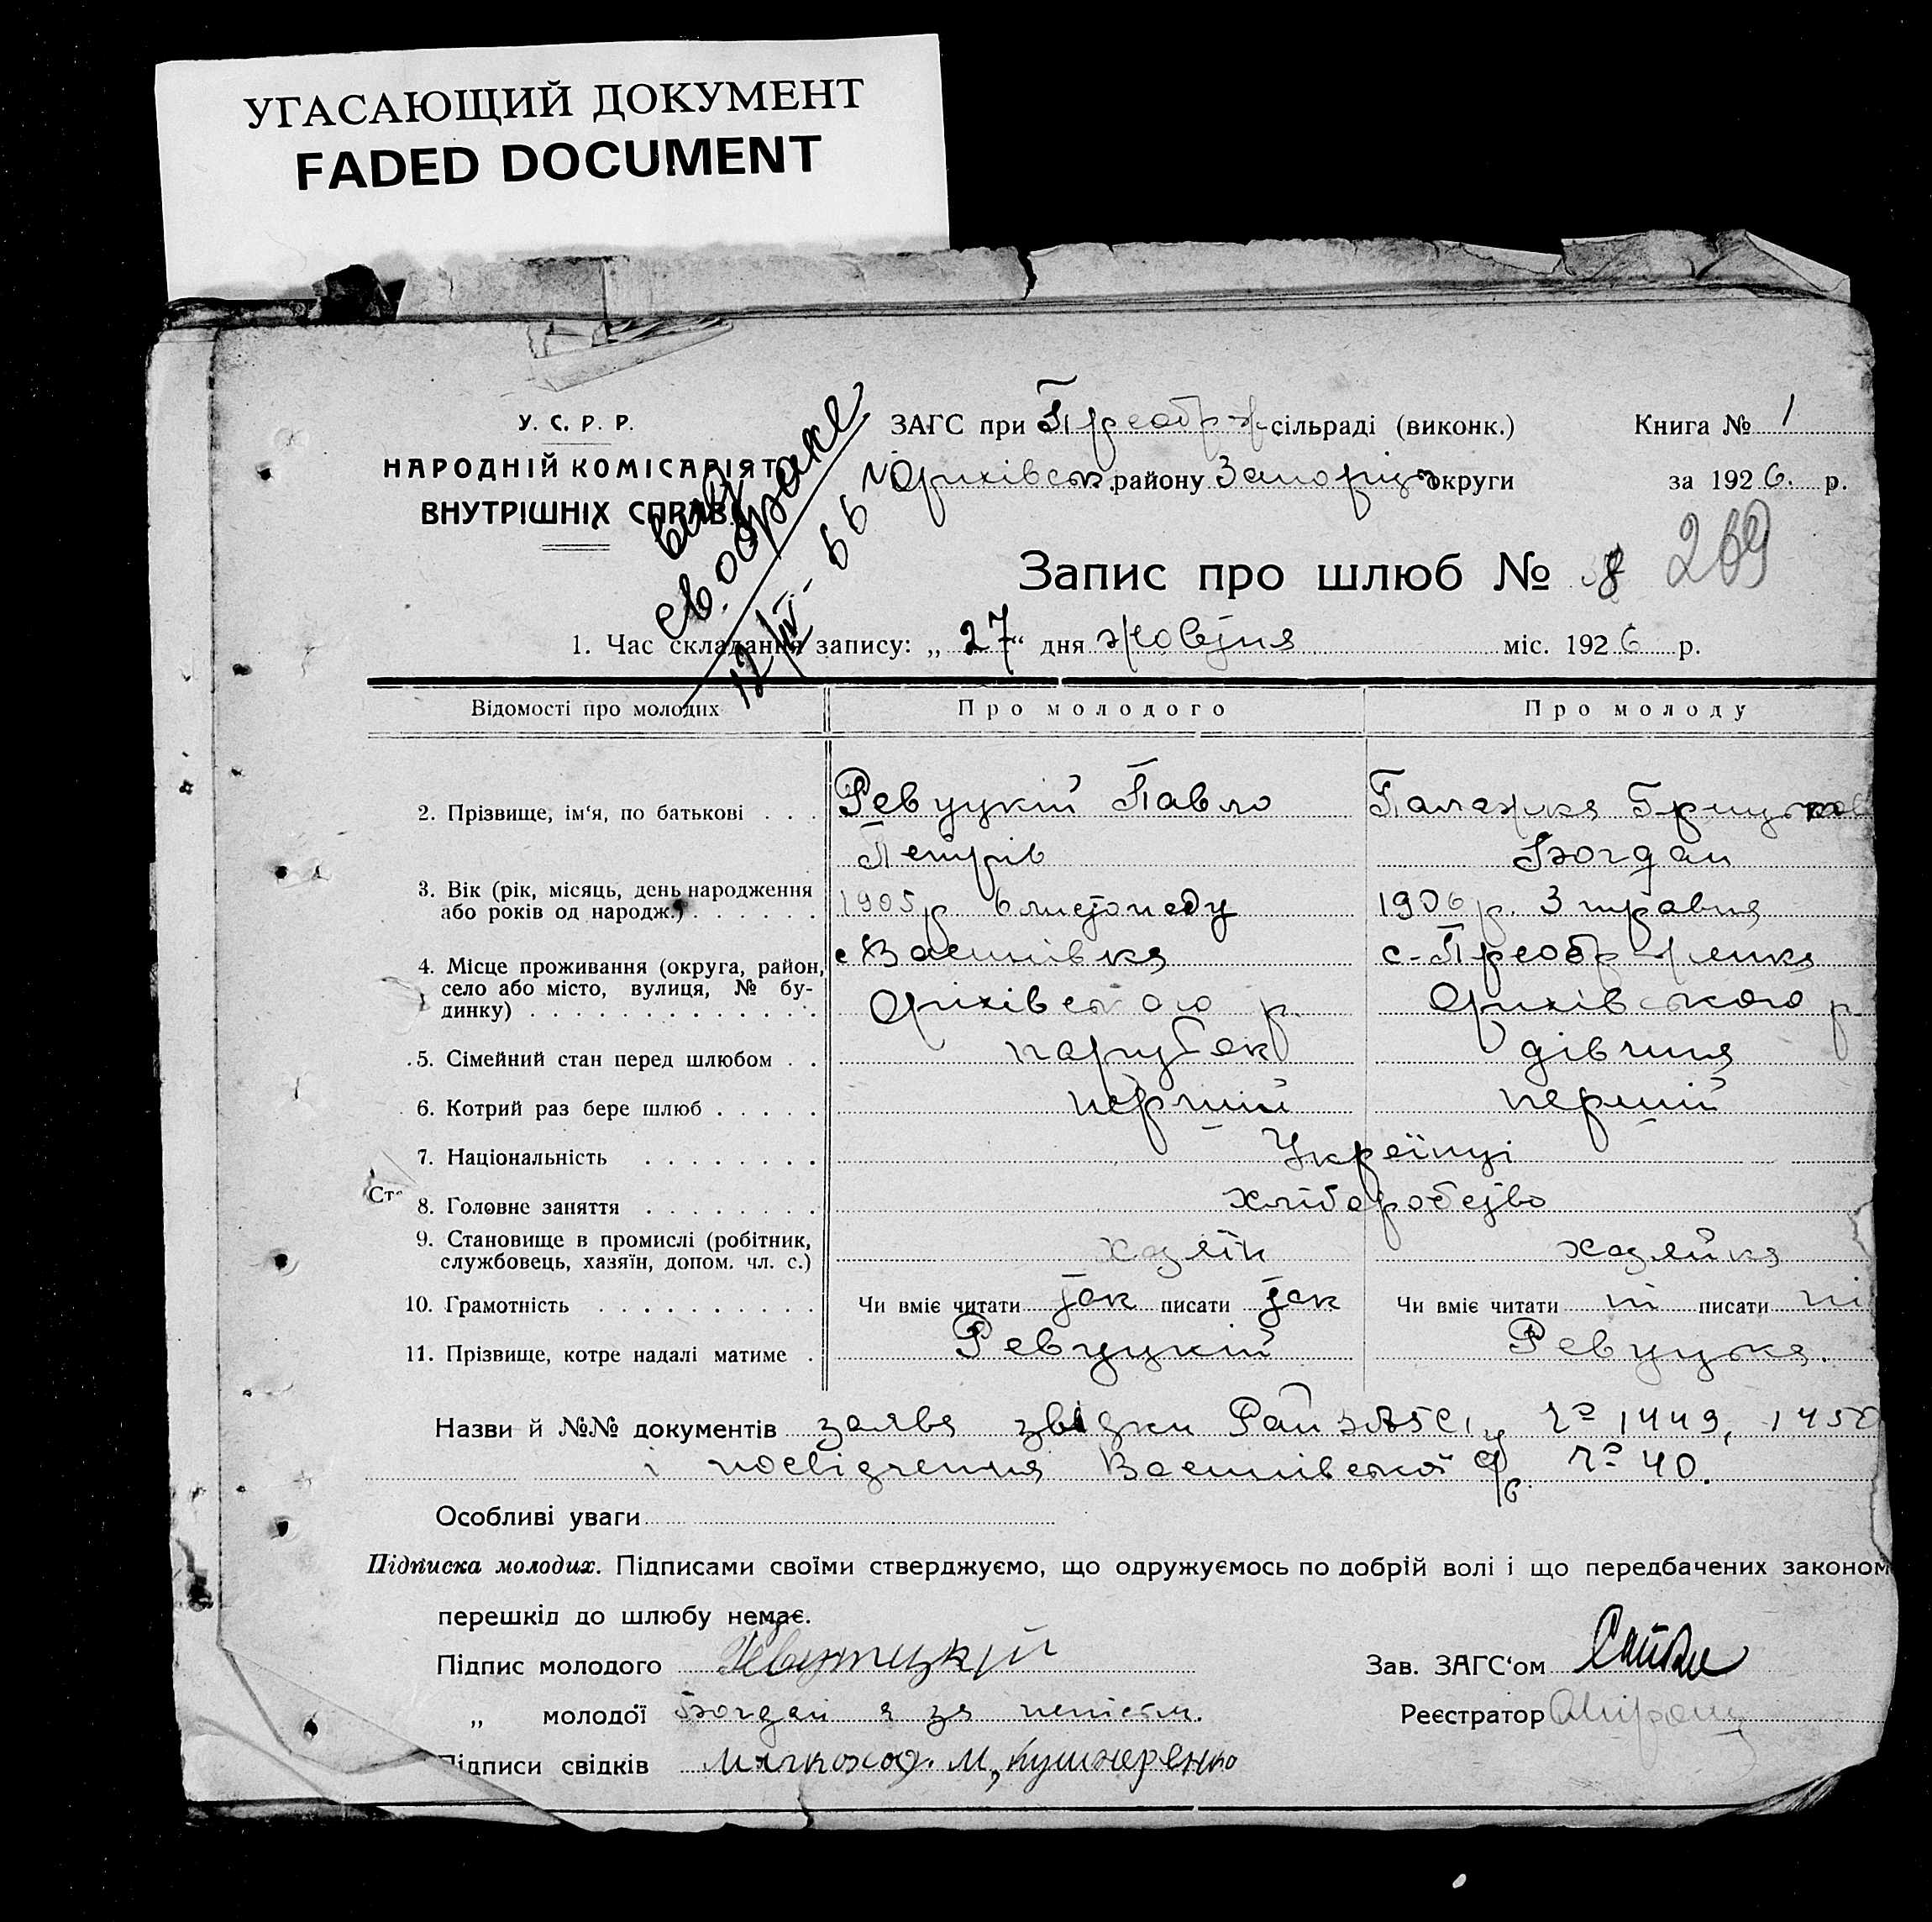 УГАСАЮЩИЙ ДОКУМЕНТ
FADED DOCUMENT
У. С. Р. Р.
НАРОДНІЙ КОМІСАРІЯТ
ВНУТРІШНІХ СПРАВ
выд
св. о браке
12/IV-66
ЗАГС при Преображ-сільраді (виконк.)
Оріхівськ. району Запоріц округи
Книга № 1
за 1926. р.
Запис про шлюб № 8 269
1. Час складання запису: „27“ дня жовтня міс. 1926 р.
Відомості про молодих Про молодого Про молоду
2. Прізвище, ім‘я, по батькові . . . Ревуцкій Павло Палажка Грицьков
Петрів Богдан
3. Вік (рік, місяць, день народження 1905 р 6 листопаду 1906 р. 3 травня
або років од народж.) . . . . . .
4. Місце проживання (округа, район, с Васинівка с-Преображенка
село або місто, вулиця, № бу-
динку) . . . . . . . . . . . . . Оріхівського р. Оріхівського р
5. Сімейний стан перед шлюбом . . парубок дівчиня
6. Котрий раз бере шлюб . . . . . перший перший
7. Національність . . . . . . . . Українці
8. Головне заняття . . . . . . . . хліборобство
9. Становище в промислі (робітник,
службовець, хазяїн, допом. чл. с.) хазяїн хазяйка
10. Грамотність . . . . . . . . . . Чи вміє читати так писати так Чи вміє читати ні писати ні
11. Прізвище, котре надалі матиме . Ревуцкій Ревуцька.
Назви й №№ документів заява звідки Рай ЗАГСу № 1449, 1450
і посвідчення Васинівської с/р. № 40.
Особливі уваги
Підписка молодих. Підписами своїми стверджуємо, що одружуємось по добрій волі і що передбачених законом
перешкід до шлюбу немає.
Підпис молодого Ревуцкій Зав. ЗАГС‘ом
„ молодої Богдан а за неписм. Реєстратор
Підписи свідків М, Кушнеренко